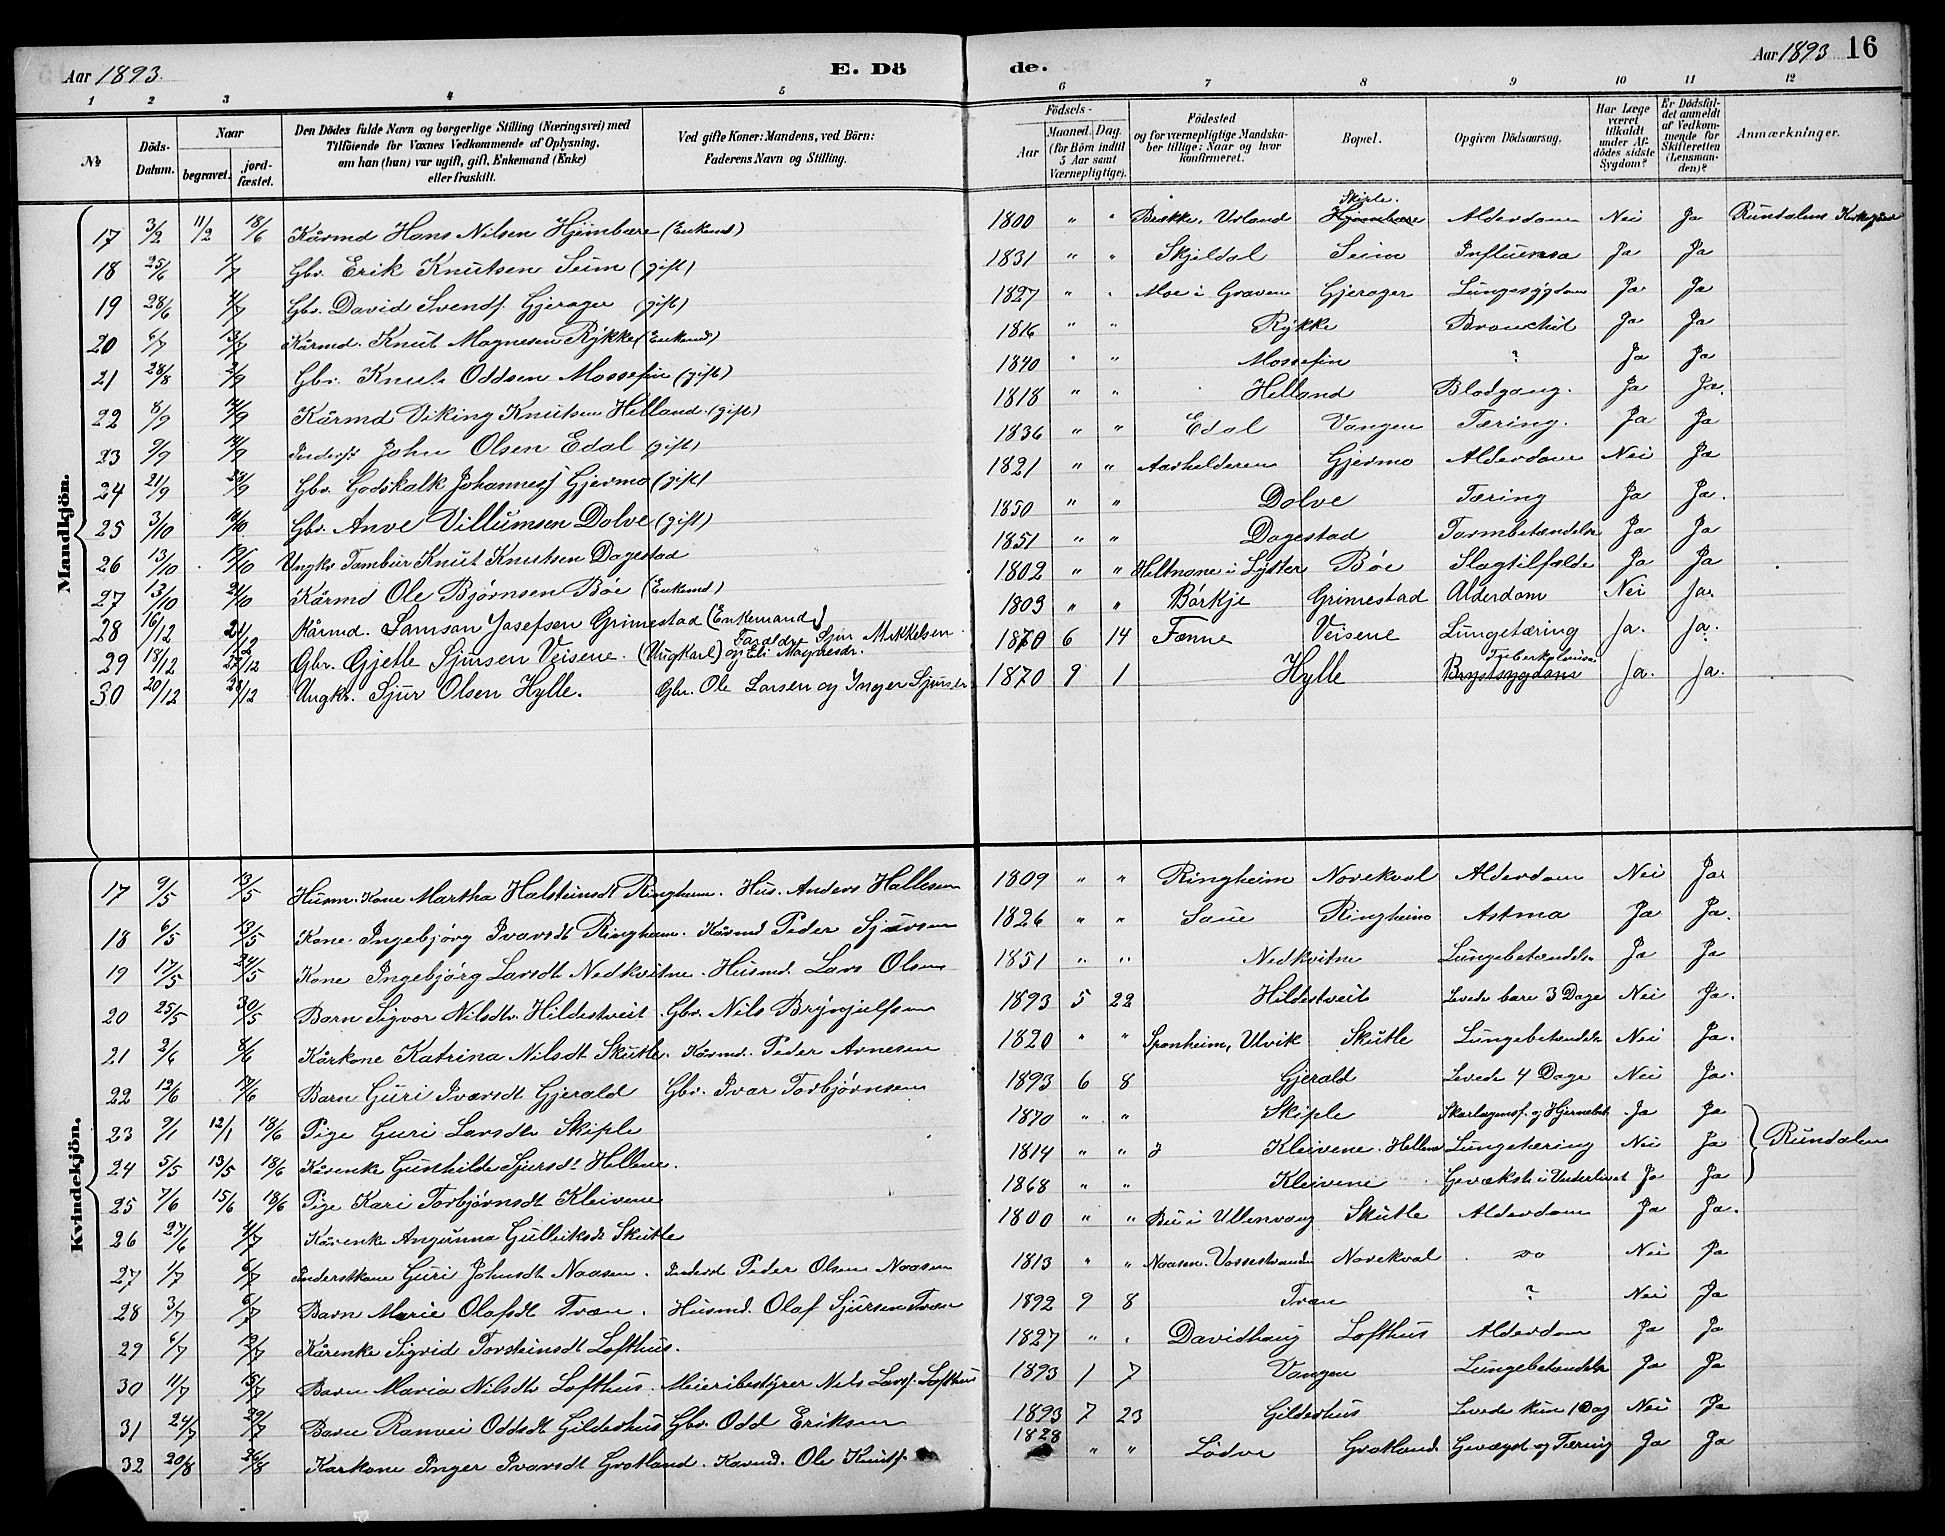 Aar 1893. E. Dö de. Aar 1893 16
1 2 3 4 5 6 7 8 9 10 11 12
№ Döds-Datum. Naar begravet. jordfæstet. Den Dödes fulde Navn og borgerlige Stilling (Næringsvei) med Tilföiende for Voxnes Vedkommende af Oplysning, om han (hun) var ugift, gift, Enkemand (Enke) eller fraskilt. Ved gifte Koner: Mandens, ved Börn: Faderens Navn og Stilling. Födsels- Aar Maaned. Dag. (for Börn indtil 5 Aar samt Værnepligtige). Födested og for værnepligtige Mandskaber tillige: Naar og hvor konfirmeret. Bopæl. Opgiven Dödsaarsag. Har Læge været tilkaldt under Afdödes sidste Sygdom? Er Dödsfaldet anmeldt af Vedkommende for Skifteretten (Lensmanden)? Anmærkninger.
Mandkjön.
17 3/2 11/2 18/6 Kårmd Hans Nilsen Hjembære (Enkemd) 1800 " " Brække, Urland Hjembære Skiple. Alderdom Nei Ja Rundalens Kirkegaard
18 25/6 1/7 Gbr. Erik Knutsen Seim (gift) 1831 " " Skjeldal Seim Influensa Ja Ja
19 28/6 4/7 Gbr. David Svends. Gjerager (gift) 1827 " " Moe i Graven Gjerager Lungesygdom Ja Ja
20 6/7 13/7 Kårmd. Knut Magnesen Rykke (Enkemd) 1816 " " Rykke Bronchit Ja Ja
21 28/8 2/9 Gbr. Knut Oddsen Mossefin (gift) 1840 " " Mossefin ? Ja Ja
22 8/9 14/9 Kårmd Viking Knutsen Helland (gift) 1818 " " Helland Blodgang. Ja Ja.
23 9/9 14/9 Inderst John Olsen Edal (gift) 1836 " " Edal Vangen Tæring. Ja Ja
24 21/9 28/9 Gbr. Godskalk Johannes. Gjermo (gift) 1821 " " Aarhelderen Gjermo Alderdom Nei Ja
25 3/10 10/10 Gbr. Anve Villumsen Dolve (gift) 1850 " " Dolve Tæring Ja Ja.
26 13/10 19/10 Ungkr Tambur Knut Knutsen Dagestad 1851 " " Dagestad Tarmbetændelse Ja Ja
27 13/10 21/10 Kårmd Ole Bjørnsen Bøe (Enkemd) 1802 " " Heltnane i Lyster Bøe Slagtilfælde Ja Ja
28 16/12 21/12 Kårmd. Samson Josefsen Grimestad (Enkemand) 1803 " " Børkje Grimestad Alderdom Nei Ja.
29 18/12 27/12 Gbr. Gjetle Sjursen Veisene. (Ungkarl) Foræld. Sjur Mikkelsen og Eli Magnesdr. 1870 6 14 Fænne Veisene Lungetæring Ja. Ja.
30 20/12 28/12 Ungkr. Sjur Olsen Hylle. Gbr. Ole Larsen og Inger Sjursdr 1870 9 1 Hylle Brystsygdom Tuberkulosis Ja. Ja.
Kvindekjön.
17 9/5 13/5 Husm. Kone Martha Halsteinsdt Ringheim. Hus. Anders Hallesen 1809 " " Ringheim Norekval Alderdom Nei Ja.
18 6/5 13/5 Kone Ingebjørg Ivarsdt Ringheim. Kårmd Peder Sjursen 1826 " " Saue Ringheim Astma Ja Ja.
19 17/5 24/5 Kone Ingebjørg Larsdt Nedkvitne. Husmd. Lars Olsen 1851 " " Nedkvitne Lungebetændelse Ja Ja
20 25/5 30/5 Barn Sigvor Nilsdtr Hildestveit. Gbr. Nils Brynjulfsen 1893 5 22 Hildestveit Levede bare 3 Dage Nei Ja.
21 2/6 8/6 Kårkone Katrina Nilsdt Skutle. Kårmd. Peder Arnesen 1820 " " Sponheim, Ulvik Skutle Lungebetændelse Nei Ja.
22 12/6 17/6 Barn Guri Ivarsdt Gjerald Gbr. Ivar Torbjørnsen 1893 6 8 Gjerald Levede 4 Dage Nei Ja.
23 9/1 12/1 18/6 Pige Guri Larsdtr Skiple 1870 " " Skiple Skarlagensf. og Hjernebet. Ja Ja
24 5/5 13/5 18/6 Kårenke Gunhilde Sjursdt Hellene. 1814 " " Kleivene. Hellene Lungetæring Nei Ja Rundalen
25 7/6 15/6 18/6 Pige Kari Torbjørnsdt Kleivene 1868 " " Kleivene Gevækst i Underlivet Ja Ja
26 27/6 4/7 Kårenke Angunna Gulleiksdt Skutle 1800 " " Bu i Ullensvang Skutle Alderdom Ja Ja.
27 1/7 6/7 Inderstkone Guri Johnsdt Naasen. Inderst Peder Olsen Naasen 1813 " " Naasen. Vossestranden Norekval do Nei Ja
28 3/7 6/7 Barn Marie Olafsdt Tvæn. Husmd. Olaf Sjursen Tvæn 1892 9 8 Tvæn ? Nei Ja
29 6/7 12/7 Kårenke Sigrid Torsteinsdt Lofthus. 1827 " " Davidhaug Lofthus Alderdom Ja Ja
30 11/7 15/7 Barn Maria Nilsdtr Lofthus. Meieribestyrer Nils Lars. Lofthus 1893 1 7 Vangen Lungebetændelse Ja Ja
31 24/7 29/7 Barn Ranvei Oddsdt Gilderhus Gbr. Odd Eriksen 1893 7 23 Gilderhus Levede kun 1 Dag Nei Ja
32 20/8 26/8 Kårkone Inger Ivarsdt Grotland. Kårmd. Ole Knuts. 1828 " " Lødve Grotland Gevægst og Tæring Ja Ja